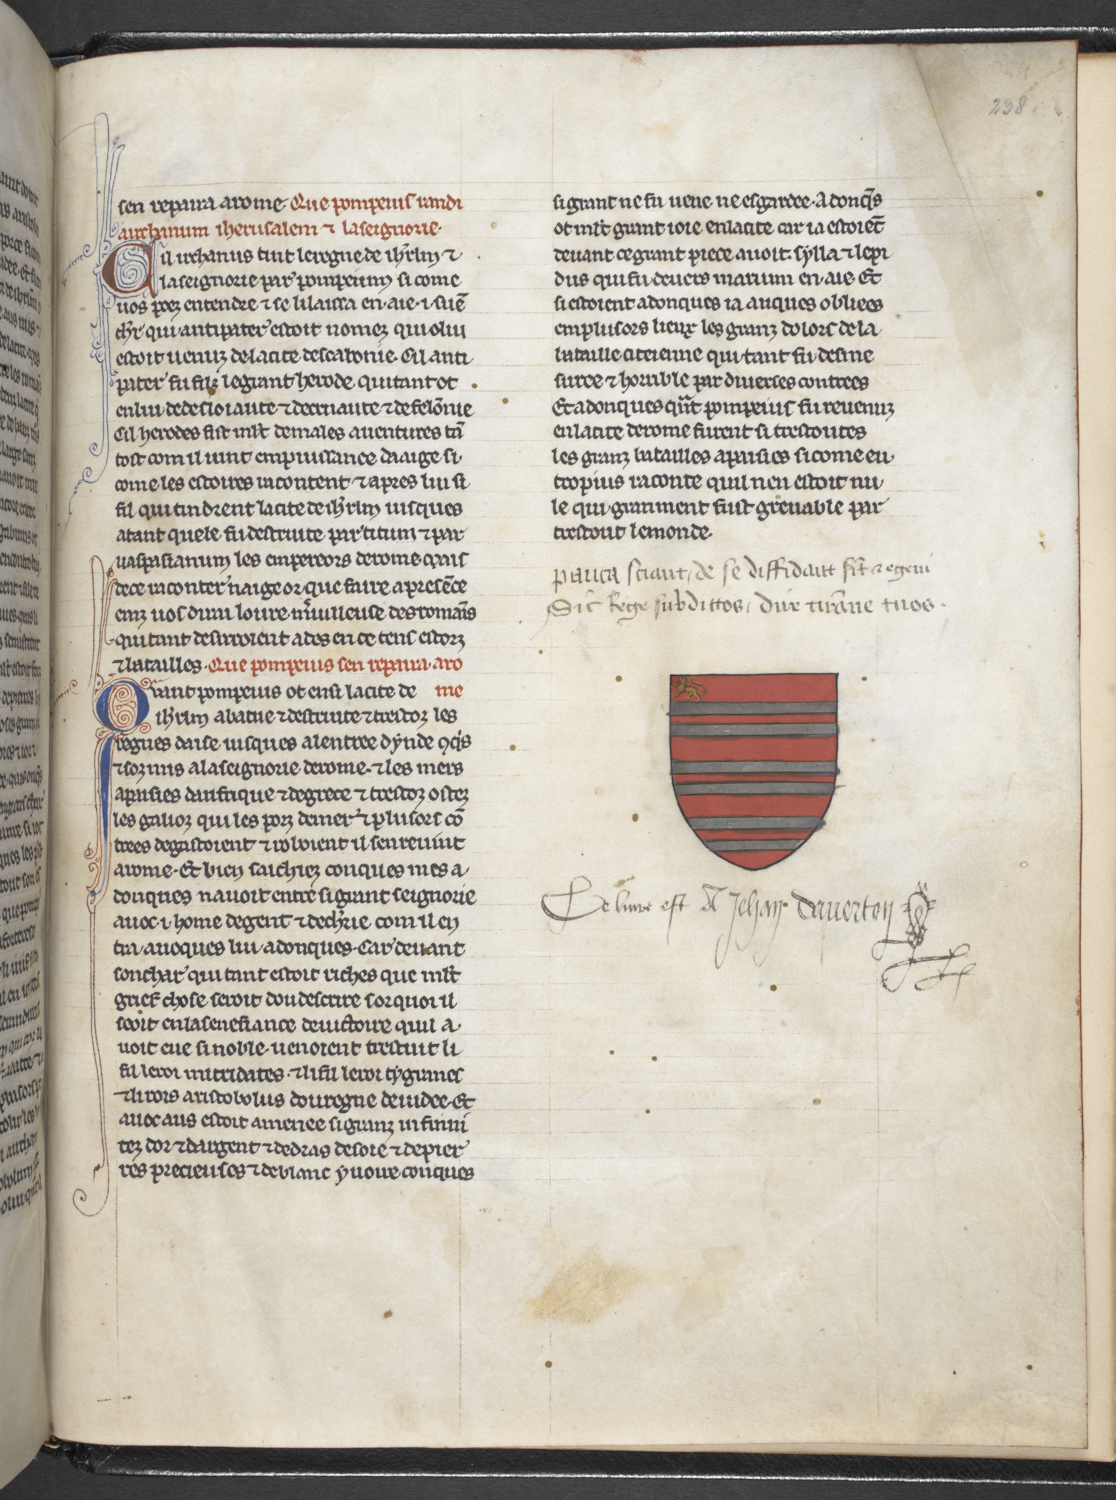 238
sen repaira arome. Que pompeius randi
aurchanum iherusalem ⁊ laseignorie.
Cil irchanus tint leregne de ihrlm ⁊
laseignorie par pompeium si come
uos poez entendre ⁊ se li laissa en aie .i. suen
chr qui antipater estoit nomez qui olui
estoit uenuz delacite descalonie. Cil anti
pater fu filz legrant herode qui tant ot
enlui dedesloiaute ⁊ decruaute ⁊ de felonie
Cil herodes fist mlt demales auentures
tost com il uint empuissance daaige si
come les estoires racontent ⁊ apres lui si
fil qui tindrent lacite de ihrlm iusques
atant quele fu destruite par titum ⁊ par
uaspasianum les empereors derome mais
dece raconter naige or que faire apresēce
enz uos dirai loure mueilleuse des romains
qui tant desirroient ades en ce tens estorz
⁊ batailles. Que pompeius sen repaira aro
me
Quant pompeius ot ensi lacite de
ihrlm abatue ⁊ destruite ⁊ trestoz les
regnes daise iusques alentree dynde
⁊ sozmis alaseignorie derome. ⁊ les mers
apaisies daufrique ⁊ degrece ⁊ trestoz ostez
les galioz qui les porz demer ⁊ plusors cō
trees degastoient ⁊ roboient il senreuint
arome. Et bien saichiez conques mes a
donques nauoit entre si grant seignorie
auoc .i. home degent ⁊ dechrie com il en
tra auoques lui adonques. Car deuant
son char qui tant estoit riches que mlt
grief chose seroit dou descrire sor quoi il
seoit enlasenefiance deuictoire quil a
uoit eue si noble uenoient trestuit li
fil leroi mitridates. ⁊ li fil leroi tygranes
⁊ li rois aristobolus douregne deiudee. Et
auoc aus estoit amenee si granz infinui
tez dor ⁊ dargent ⁊ dedras desoie ⁊ depier
res precieuses ⁊ deblanc yuoire conques
sigrant ne fu ueue ne esgardee. Adonqs
ot mlt grant ioie enlacite car ia estoiēt
deuant ce grant piece auoit. sylla ⁊ lepi
dus qui fu deuers marium en aie. Et
si estoient adonques ia auques obliees
emplusors lieux les granz dolors de la
bataille citeienne qui tant fu desme
suree ⁊ horrible par diuerses contrees
Et adonques qnt pompeius fu reuenuz
enlacite derome furent si trestoutes
les granz batailles apaisies si come eu
tropius raconte quil nen estoit nu
le qui granment fust greuable par
trestout lemonde.
pauca sciant, de se diffidant
Sic Rege subdittos, dux tirāne tuos.
Ce liure est A Jehan Dauerton